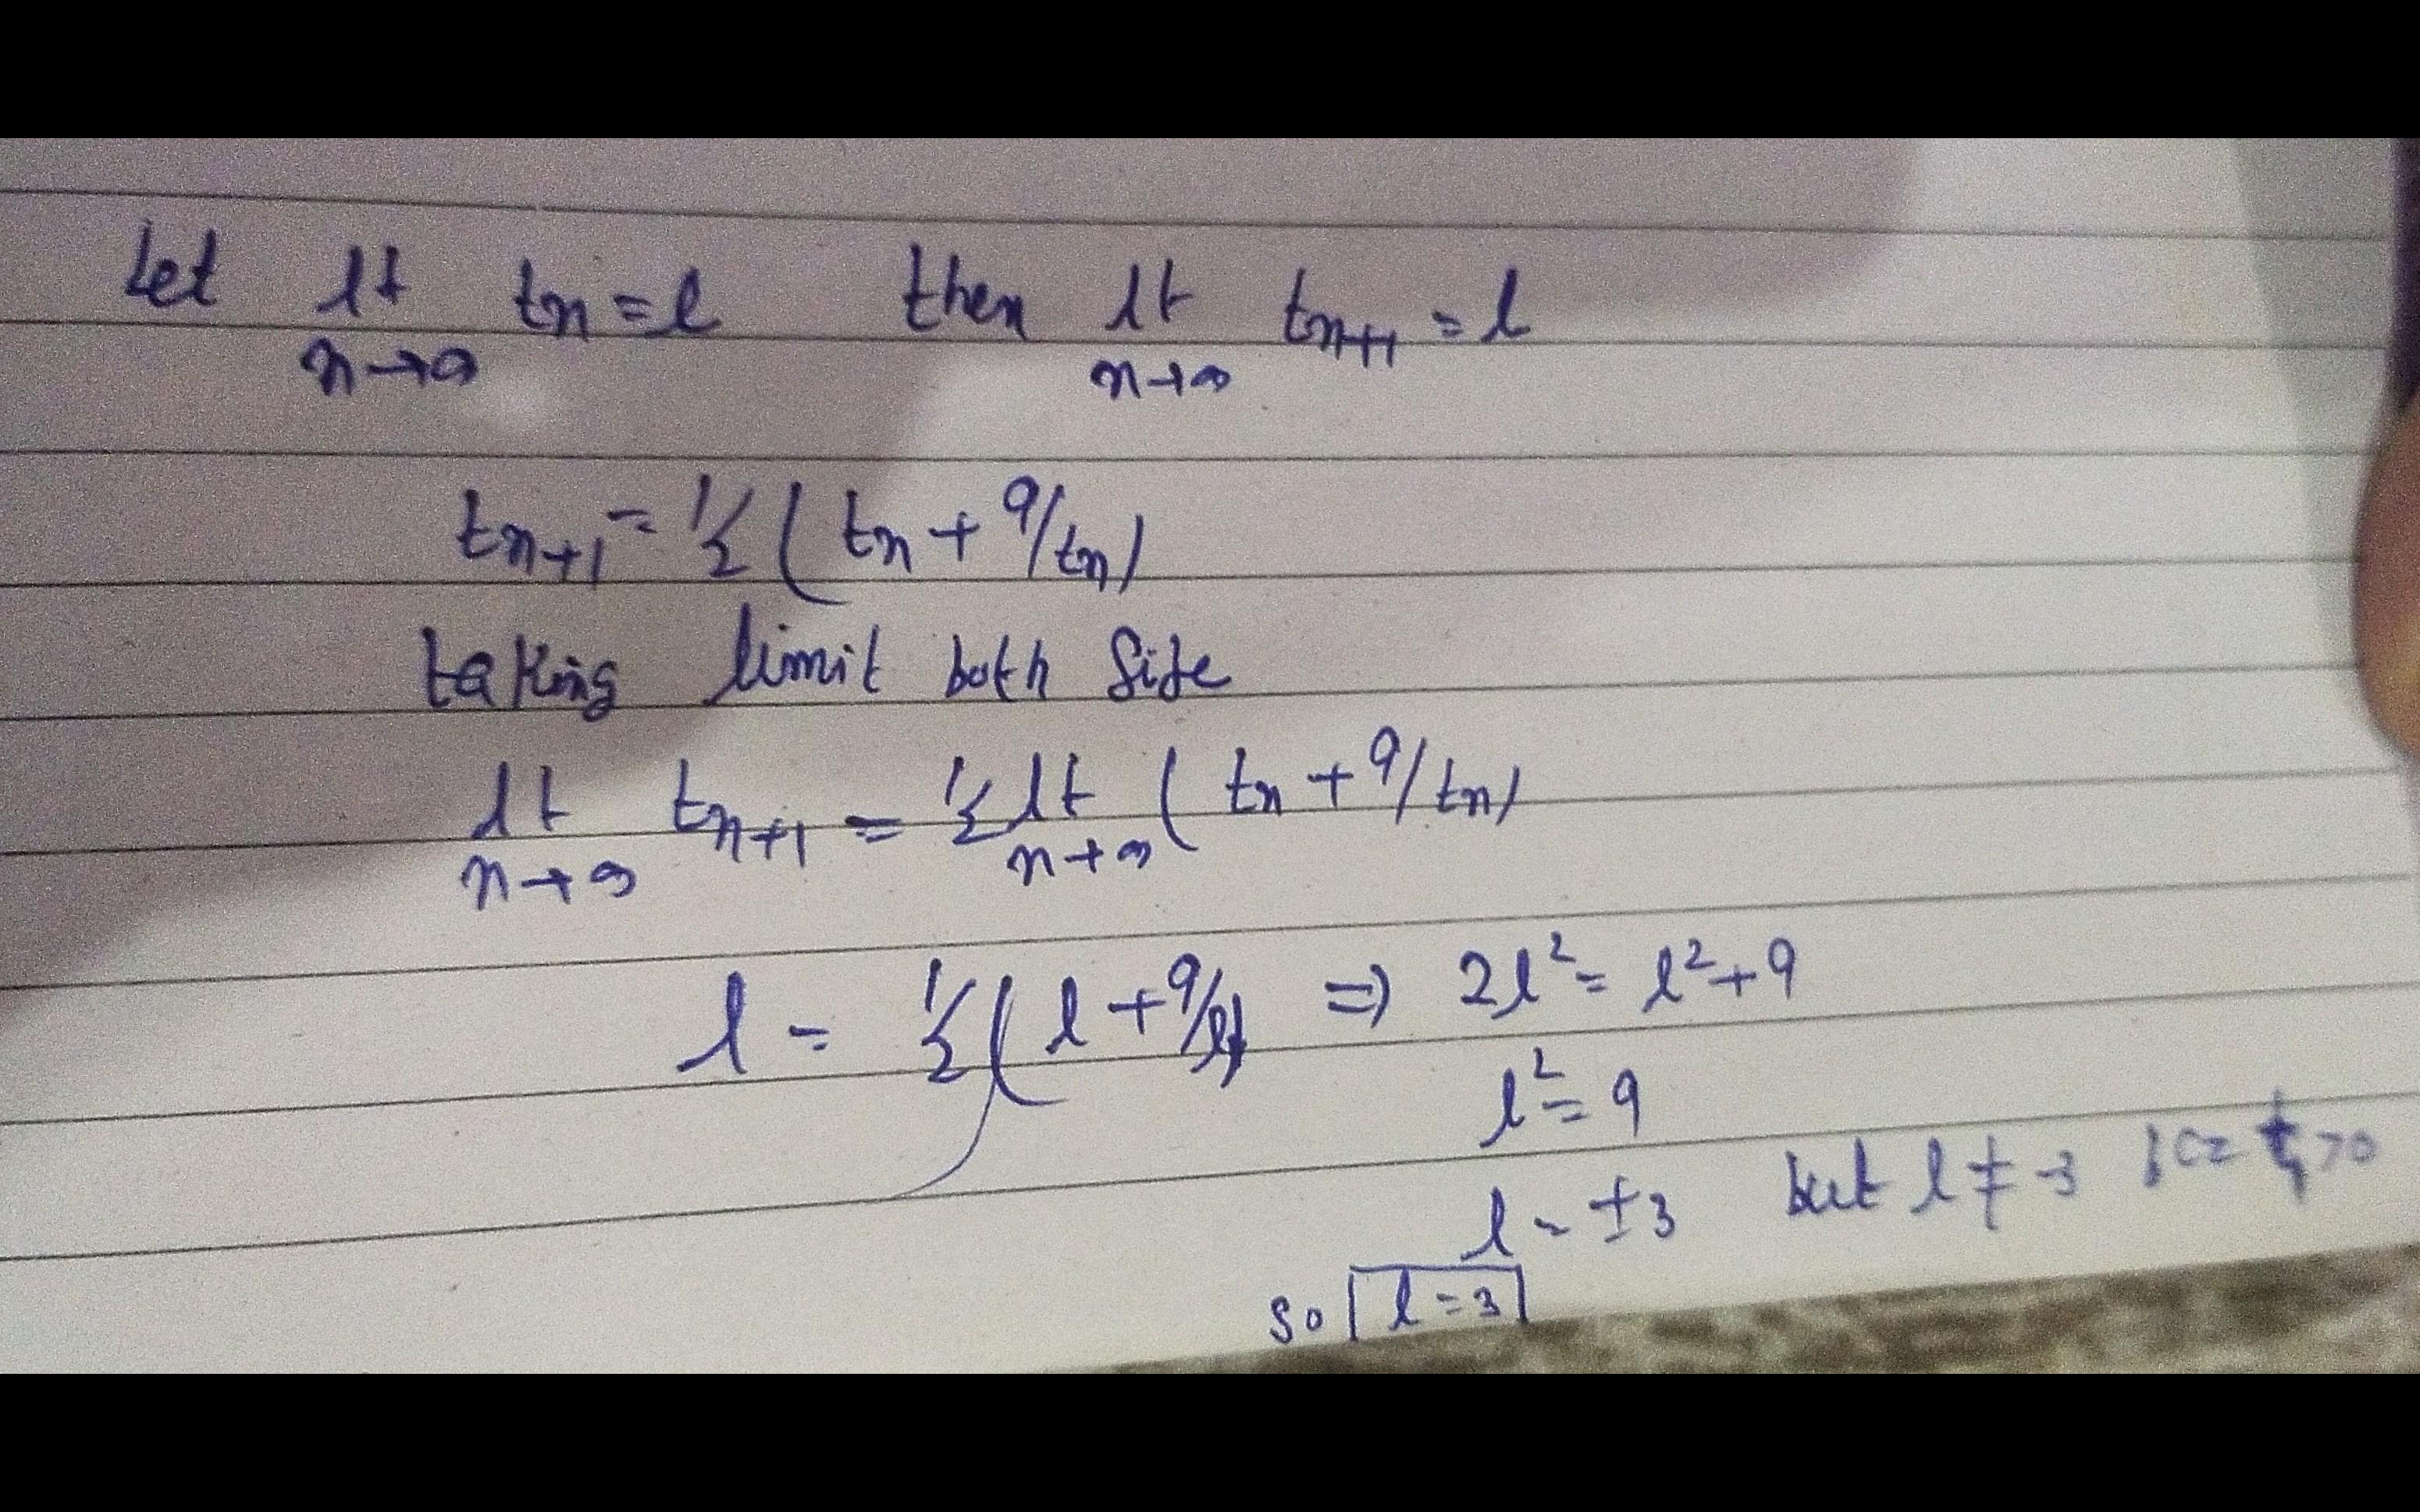 Let lt tn = l then lt tn+1 = l
n→∞ n→∞
tn+1 = 1/2 ( tn + 9/tn )
taking limit both side
lt tn+1 = 1/2 lt ( tn + 9/tn )
n→∞ n→∞
l = 1/2 ( l + 9/l ) ⇒ 2l² = l² + 9
l² = 9
l = ±3 but l ≠ -3 >0
so l = 3